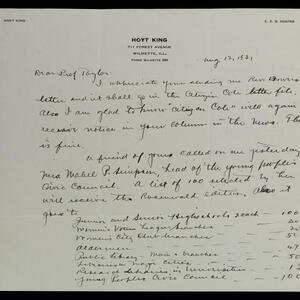 HOYT KING
HOYT KING
C. E. S. HUNTER
711 FOREST AVENUE
WILMETTE, ILL.
PHONE WILMETTE
Aug 12, 1931
Dear Prof Taylor
I appreciate your sending me Rev
letter and it shall go in the Citizen Cole letter file.
Also I am glad to know "Citizen Cole" will again
receive notice in your column in the News. This
is fine.
A friend of yours called on me yesterday
Mrs Mabel P. Simpson, head of the young people's
Civic Council. A list of 100 selected by her
will receive the Rosenwald edition. Also it
goes to
Junior and Senior Highschools 2 each — 100
Women's Voters League branches — 20
Women's City Club branches — 20
Aldermen — 
Public Library - Main & branches — 50
Libraries in large cities —
Research Libraries in Universities —
Young Peoples Civic Council — 100